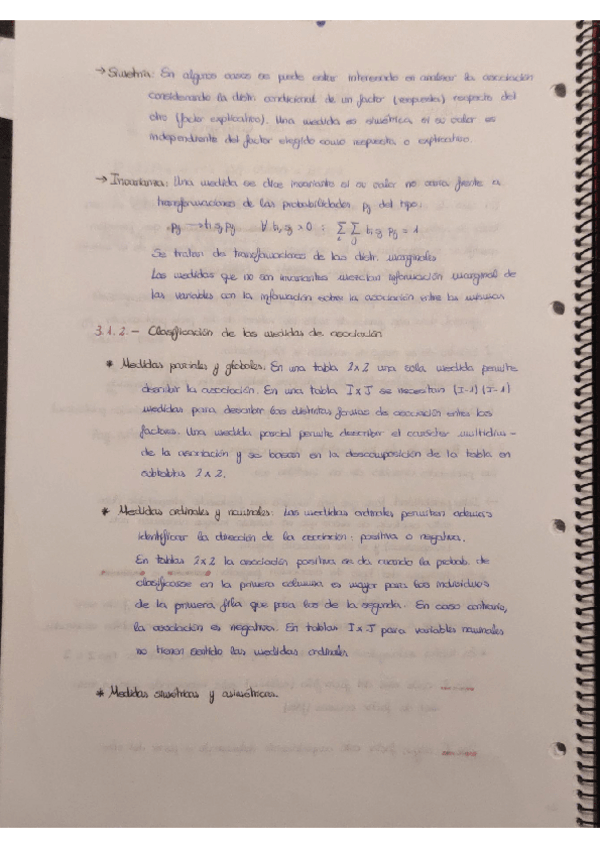 → Simetría: En algunos casos se puede estar interesado en analizar la asociación
considerando la distr. condicional de un factor (respuesta) respecto del
otro (factor explicativo). Una medida es simétrica si su valor es
independiente del factor elegido como respuesta o explicativo.
→ Invarianza: Una medida se dice invariante si su valor no varía frente a
transformaciones de las probabilidades pij del tipo:
pij → ti sj pij ∀ ti, sj > 0 ; Σi Σj ti sj pij = 1.
Se tratan de transformaciones de las distr. marginales
Las medidas que no son invariantes mezclan información marginal de
las variables con la información sobre la asociación entre las mismas
3.1.2.- Clasificación de las medidas de asociación
* Medidas parciales y globales. En una tabla 2x2 una sola medida permite
describir la asociación. En una tabla I x J se necesitan (I-1)(J-1)
medidas para describir las distintas formas de asociación entre los
factores. Una medida parcial permite describir el carácter multidim-
de la asociación y se basan en la descomposición de la tabla en
subtablas 2x2.
* Medidas ordinales y nominales: Las medidas ordinales permiten además
identificar la dirección de la asociación: positiva o negativa.
En tablas 2x2 la asociación positiva se da cuando la probab. de
clasificarse en la primera columna es mayor para los individuos
de la primera fila que para los de la segunda. En caso contrario,
la asociación es negativa. En tablas I x J para variables nominales
no tienen sentido las medidas ordinales
* Medidas simétricas y asimétricas.